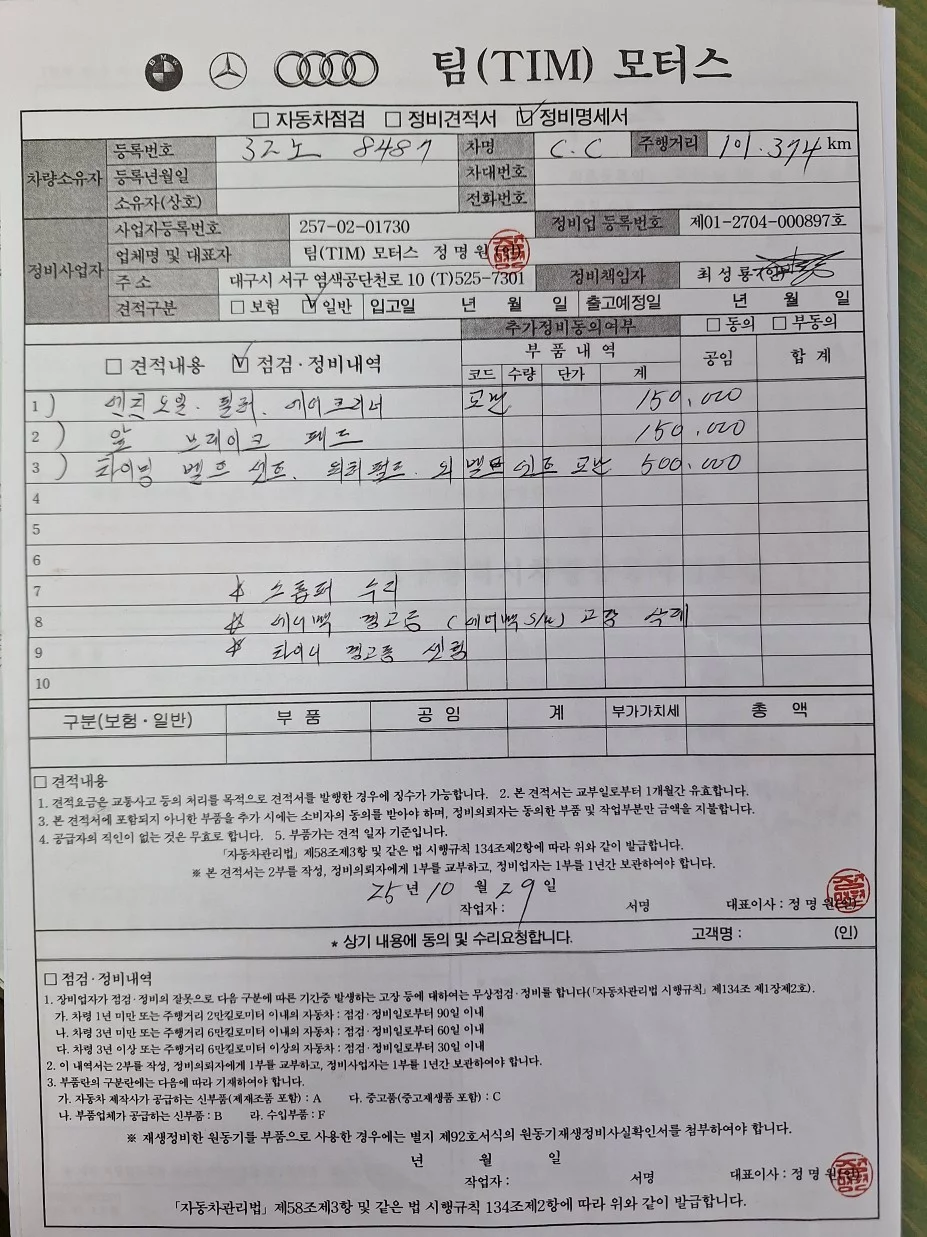 팀(TIM) 모터스
□ 자동차점검 □ 정비견적서 ☑ 정비명세서
차량소유자
등록번호 32노 8487 차명 C.C 주행거리 101.374 km
등록년월일 차대번호
소유자(상호) 전화번호
정비사업자
사업자등록번호 257-02-01730 정비업 등록번호 제01-2704-000897호
업체명 및 대표자 팀(TIM) 모터스 정 명 원 (인)
주 소 대구시 서구 염색공단천로 10 (T)525-7301 정비책임자 최 성 룡
견적구분 □ 보험 ☑ 일반 입고일 년 월 일 출고예정일 년 월 일
추가정비동의여부 □ 동의 □ 부동의
□ 견적내용 ☑ 점검·정비내역 부 품 내 역 공임 합 계
코드 수량 단가 계
1) 엔진오일. 필터. 에어크리너 교환 150,000
2) 앞 브레이크 패드 150,000
3) 타이밍 벨트 셋트. 워터펌프. 외 벨트 셋트 교환 500,000
4
5
6
7 * 스톱퍼 수리
8 * 에어백 경고등 (에어백 S/W) 고장 삭제
9 * 타이어 경고등 셋팅
10
구분(보험·일반) 부 품 공 임 계 부가가치세 총 액
□ 견적내용
1. 견적요금은 교통사고 등의 처리를 목적으로 견적서를 발행한 경우에 징수가 가능합니다. 2. 본 견적서는 교부일로부터 1개월간 유효합니다.
3. 본 견적서에 포함되지 아니한 부품을 추가 시에는 소비자의 동의를 받아야 하며, 정비의뢰자는 동의한 부품 및 작업부분만 금액을 지불합니다.
4. 공급자의 직인이 없는 것은 무효로 합니다. 5. 부품가는 견적 일자 기준입니다.
「자동차관리법」제58조제3항 및 같은 법 시행규칙 134조제2항에 따라 위와 같이 발급합니다.
※ 본 견적서는 2부를 작성, 정비의뢰자에게 1부를 교부하고, 정비업자는 1부를 1년간 보관하여야 합니다.
25년 10 월 29 일
작업자 : 서명 대표이사 : 정 명 원 (인)
* 상기 내용에 동의 및 수리요청합니다. 고객명 : (인)
□ 점검·정비내역
1. 장비업자가 점검·정비의 잘못으로 다음 구분에 따른 기간중 발생하는 고장 등에 대하여는 무상점검·정비를 합니다(「자동차관리법 시행규칙」제134조 제1장제2호).
가. 차령 1년 미만 또는 주행거리 2만킬로미터 이내의 자동차 : 점검·정비일로부터 90일 이내
나. 차령 3년 미만 또는 주행거리 6만킬로미터 이내의 자동차 : 점검·정비일로부터 60일 이내
다. 차령 3년 이상 또는 주행거리 6만킬로미터 이상의 자동차 : 점검·정비일로부터 30일 이내
2. 이 내역서는 2부를 작성, 정비의뢰자에게 1부를 교부하고, 정비사업자는 1부를 1년간 보관하여야 합니다.
3. 부품란의 구분란에는 다음에 따라 기재하여야 합니다.
가. 자동차 제작사가 공급하는 신부품(제재조품 포함) : A 다. 중고품(중고재생품 포함) : C
나. 부품업체가 공급하는 신부품 : B 라. 수입부품 : F
※ 재생정비한 원동기를 부품으로 사용한 경우에는 별지 제92호서식의 원동기재생정비사실확인서를 첨부하여야 합니다.
년 월 일
작업자 : 서명 대표이사 : 정 명 원 (인)
「자동차관리법」제58조제3항 및 같은 법 시행규칙 134조제2항에 따라 위와 같이 발급합니다.